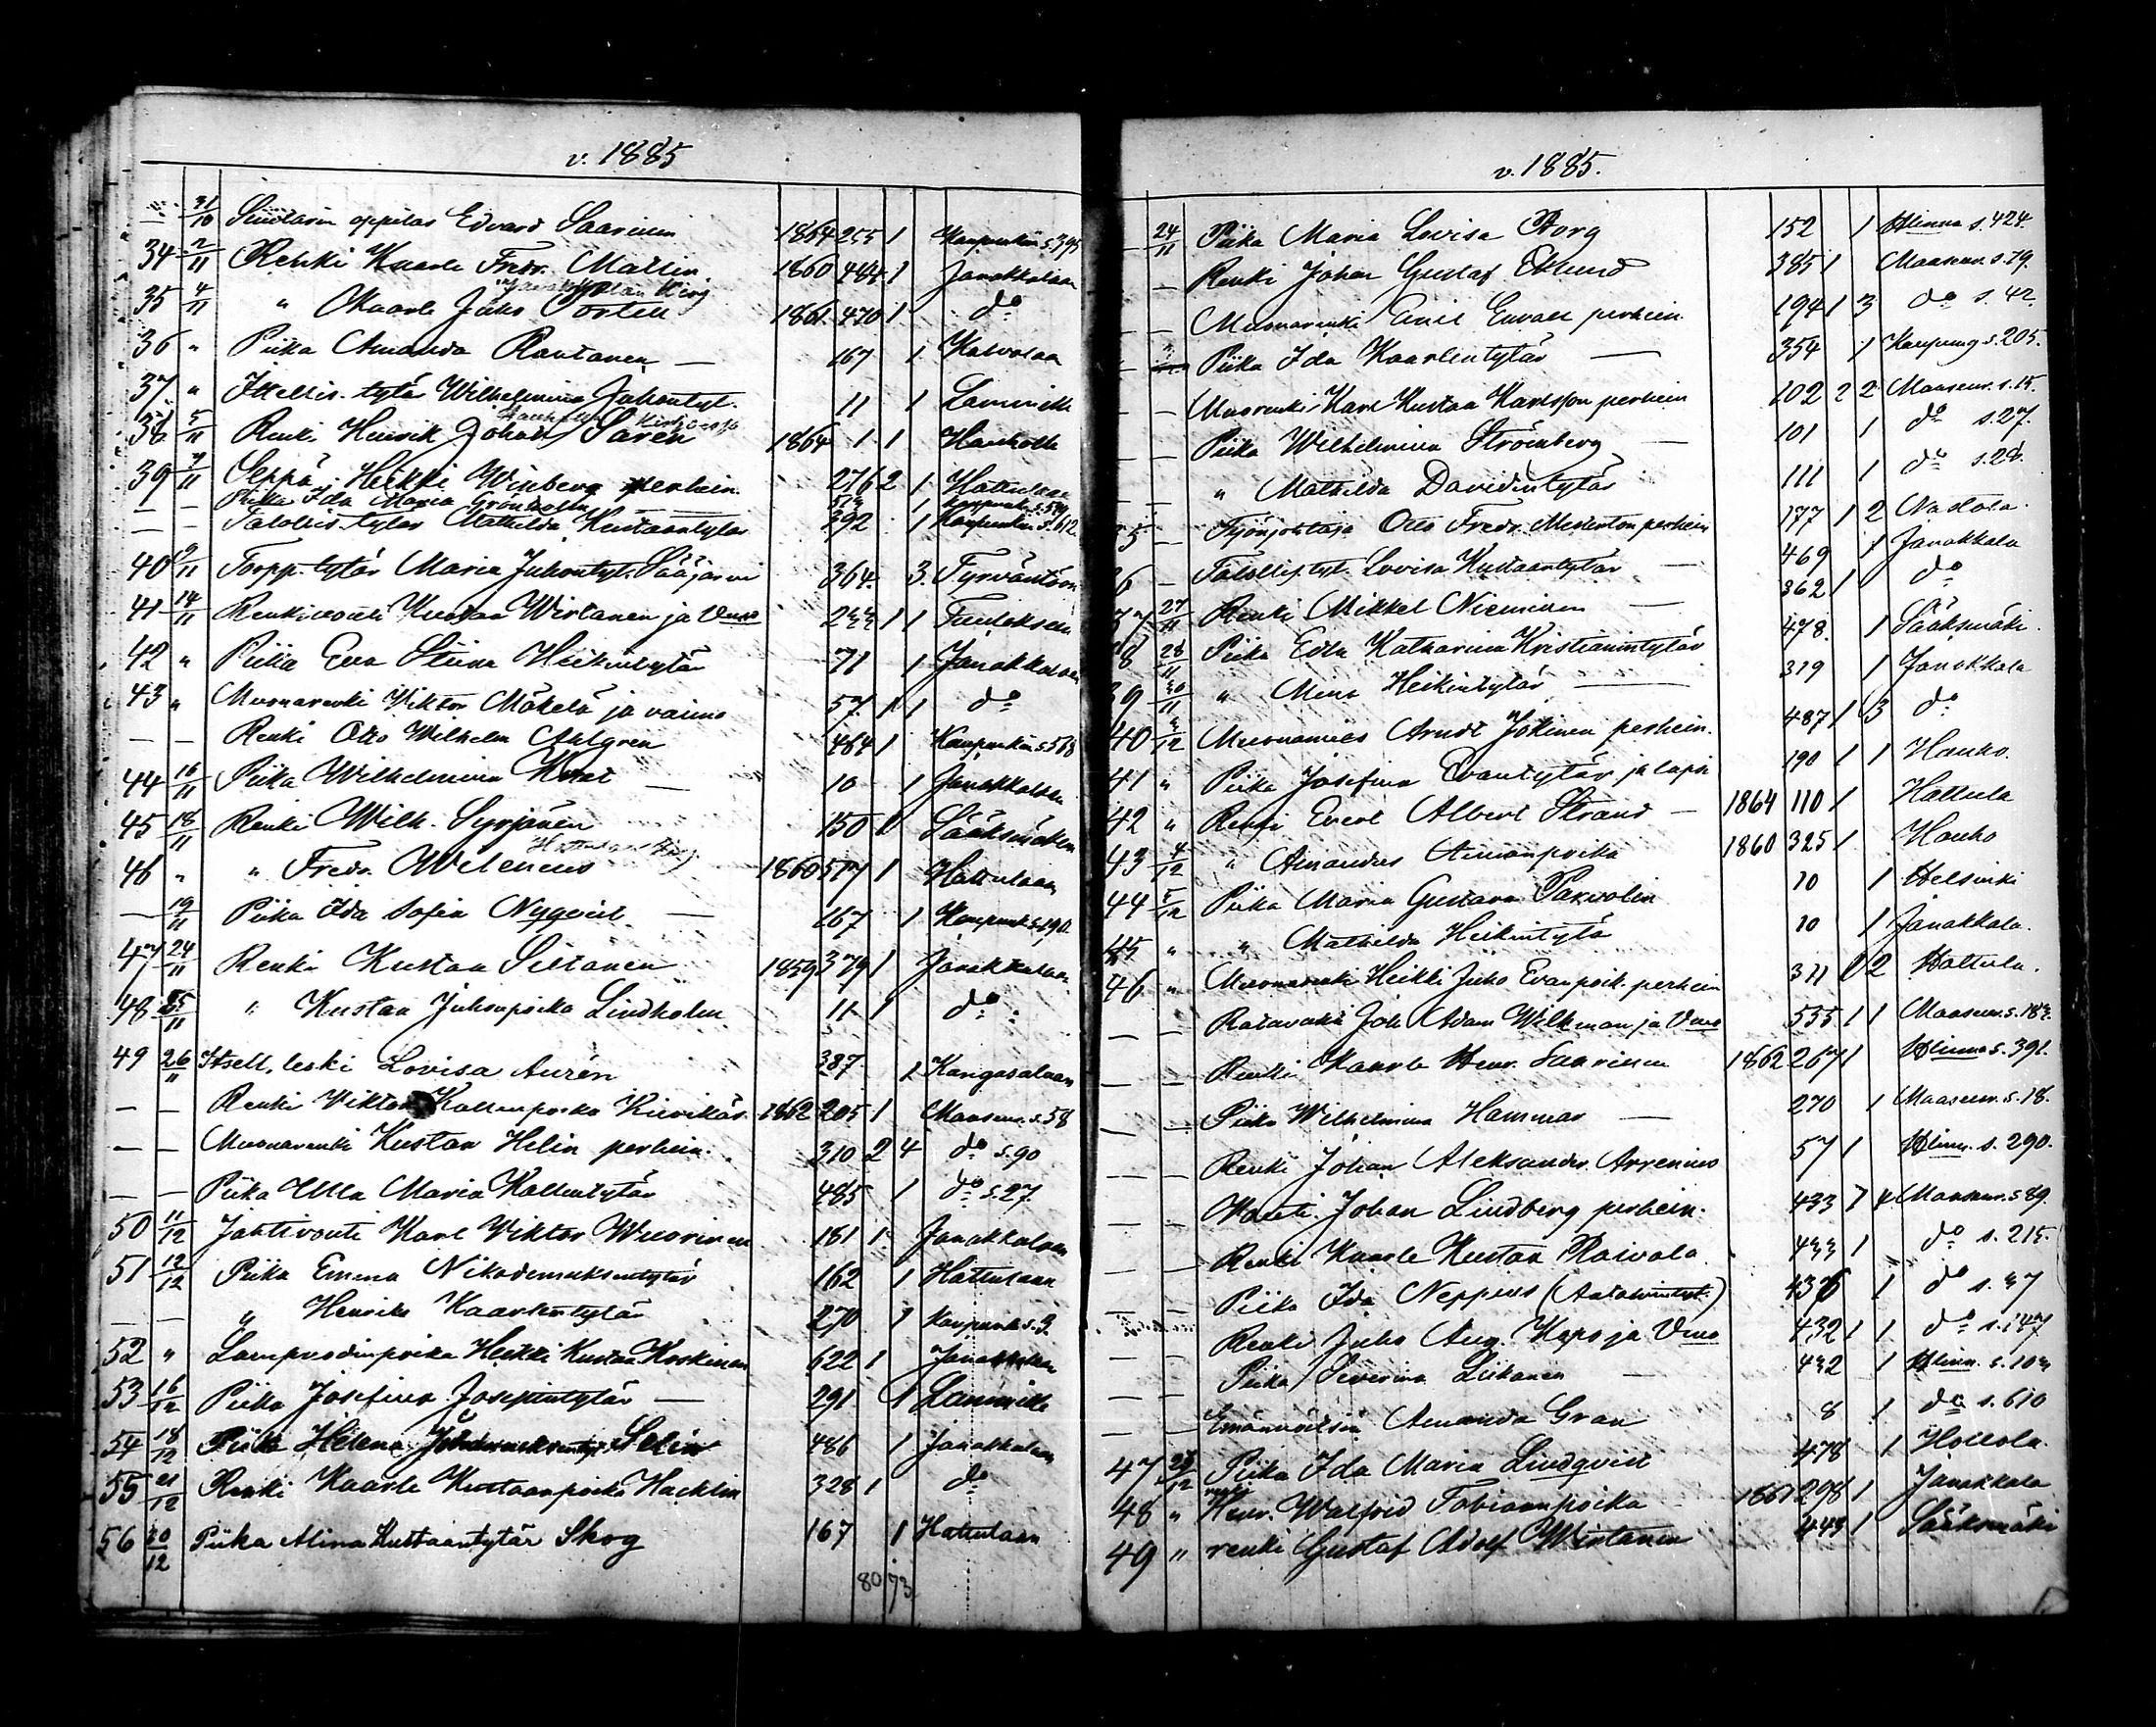 v. 1885
— 31/10 Suutarin oppilas Edvard Saarinen 1864 255 1 Kaupunkiin s. 395
34 2/11 Renki Kaarle Fredr. Mattin 1860 484 1 Janakkalaan
35 4/11 " Kaarle Juho 1861 470 1 do
36 " Piika Amanda Rautanen — 167 1 Kalvolaan
37 " Itsellis. tytär Wilhelmina Juhontyt. 11 1 Lammille
38 5/11 Renki Henrik Johan Saren 1864 1 1 Hauholle
39 7/11 Seppä Heikki Winberg perhein. 276 2 1 Hattulaan
Piika Ida Maria Grönholm 1
— — Talollis. tytär Mathilda Kustaantytär 392 1 Kaupunkiin s. 612
40 9/11 Torpp. tytär Maria Juhontyt. Sääjärvi 364 3 Tyrväntöön
41 14/11 Renkivouti Kustaa Wirtanen ja Vmo 233 1 1 Tuulokseen
42 " Piika Eva Stiina Heikintytär 71 1 Janakkalaan
43 " Muonarenki Viktor Mäkelä ja vaimo 57 1 1 do
— — Renki Otto Wilhelm Ahlgren 464 1 Kaupunkiin s. 568
44 16/11 Piika Wilhelmina — 10 1 Janakkalaan
45 18/11 Renki Wilh. Syrjänen 150 1 Sääksmäkeen
46 " " Fredr. Welenius 1860 517 1 Hattulaan
— 19/11 Piika Ida Sofia Nyqvist — 167 1 Kaupunk. s. 190
47 24/11 Renki Kustaa Siltanen 1859 379 1 Janakkalaan
48 25/11 " Kustaa Juhonpoika Lindholm 11 1 do
49 26/11 Itsell. leski Lovisa Aurén 387 1 Kangasalaan
— — Renki Viktor Kallenpoika 1862 205 1 Maaseur. s. 58
— — Muonarenki Kustaa Helin perhein. 310 2 4 do s. 90
— — Piika Ulla Maria Kallentytär 485 1 do s. 27
50 11/12 Jahtivouti Karl Viktor Wuorinen 181 1 Janakkalaan
51 12/12 Piika Emma Nikodemuksentytär 162 1 Hattulaan
— — " Henrika Kaarlentytär 270 1 Kaupunk. s. 3
52 " Lampuodinpoika Heikki Kustaa Koskinen 622 1 Janakkalaan
53 16/12 Piika Josefina Josepintytär — 291 1 Lammille
54 18/12 Piika Helena Selin 486 1 Janakkalaan
55 21/12 Renki Kaarle Kustaanpoika Hacklin 328 1 do
56 30/12 Piika Alina Kustaantytär Skog 167 1 Hattulaan
80 73
v. 1885.
— 24/11 Piika Maria Lovisa Borg 152 1 Hlinna s. 424.
— Renki Johan Gustaf Eklund 385 1 Maaseur. s. 79.
— — Muonarenki Emil Envall perhein. 194 1 3 do s. 42.
— Piika Ida Kaarlentytär — 354 1 Kaupung s. 205.
— — Muorenki Karl Kustaa Karlsson perhein 102 2 2 Maaseur. s. 15.
— — Piika Wilhelmina Strömberg — 101 1 do s. 27.
— — " Mathilda Davidintytär 111 1 do s. 28.
35 — Työnjohtaja Otto Fredr. perhein 177 1 2 Nastola.
36 — Talollis. tyt. Lovisa Kustaantytär — 469 1 Janakkala
37 27/11 Renki Mikkel Nieminen — 362 1 do
38 28/11 Piika Edla Katharina Kristianintytär 478 1 Sääksmäki.
39 30/11 " Mina Heikintytär — 319 1 Janakkala
40 3/12 Muonamies Arndt Jokinen perhein. 487 1 3 do
41 " Piika Josefina Evantytär ja lapsi 190 1 1 Hauho.
42 " Renki Evert Albert Strand — 1864 110 1 Hattula
43 4/12 " Amandus 1860 325 1 Hauho
44 5/12 Piika Maria Gustava Parvolin 10 1 Helsinki
45 " " Mathilda Heikintytä 10 1 Janakkala.
46 " Muonarenki Heikki Juho Evanpoik. perhein 311 1 2 Hattula.
— — Ratavahti Joh. Adam Wilkman ja Vmo 535 1 1 Maaseur. s. 183.
— — Renki Kaarle Henr. Saarinen 1862 267 1 Hlinna s. 391.
— — Piika Wilhelmina Hammar — 270 1 Maaseur. s. 18.
— — Renki Johan Aleksander Arrenius 57 1 Hlinn. s. 290.
— — Vouti Johan Lindberg perhein. 433 7 4 Maaseur. s. 89.
— — Renki Kaarle Kustaa Raivola 433 1 do s. 215.
— — Piika Ida Neppius 436 1 do s. 37
— — Renki Juho Aug. ja Vmo 432 1 1 do s. 147
— — Piika Severina — 432 1 Hlinn. s. 103
— — Emännöitsiä Amanda Gran 8 1 do s. 610
47 28/12 Piika Ida Maria Lindqvist 478 1 Hollola.
48 " Henr. Walfrid Tobiaanpoika 1861 298 1 Janakkala
49 " renki Gustaf Adolf Wirtanen 443 1 Sääksmäki